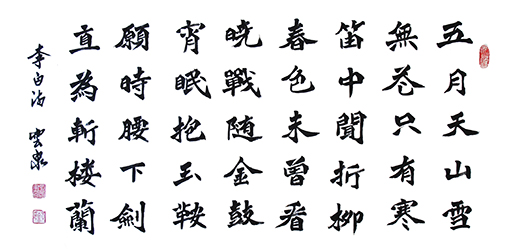 五月天山雪
無花只有寒
笛中聞折柳
春色未曾看
曉戰随金鼓
宵眠抱玉鞍
願時腰下劍
直為斬楼蘭
李白诗 雲泉